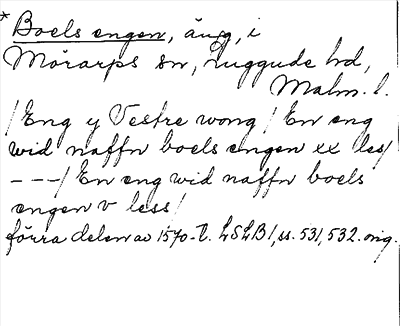 * Boels engen, äng, i
Mörarps sn, Luggude hd,
Malm. l.
/Eng y Vestre wong/En eng
wid naffn boels engen xx less/
---/En eng wid naffn boels
engen v less/
förra delen av 1570-t. LSLB1, ss. 531, 532. orig.